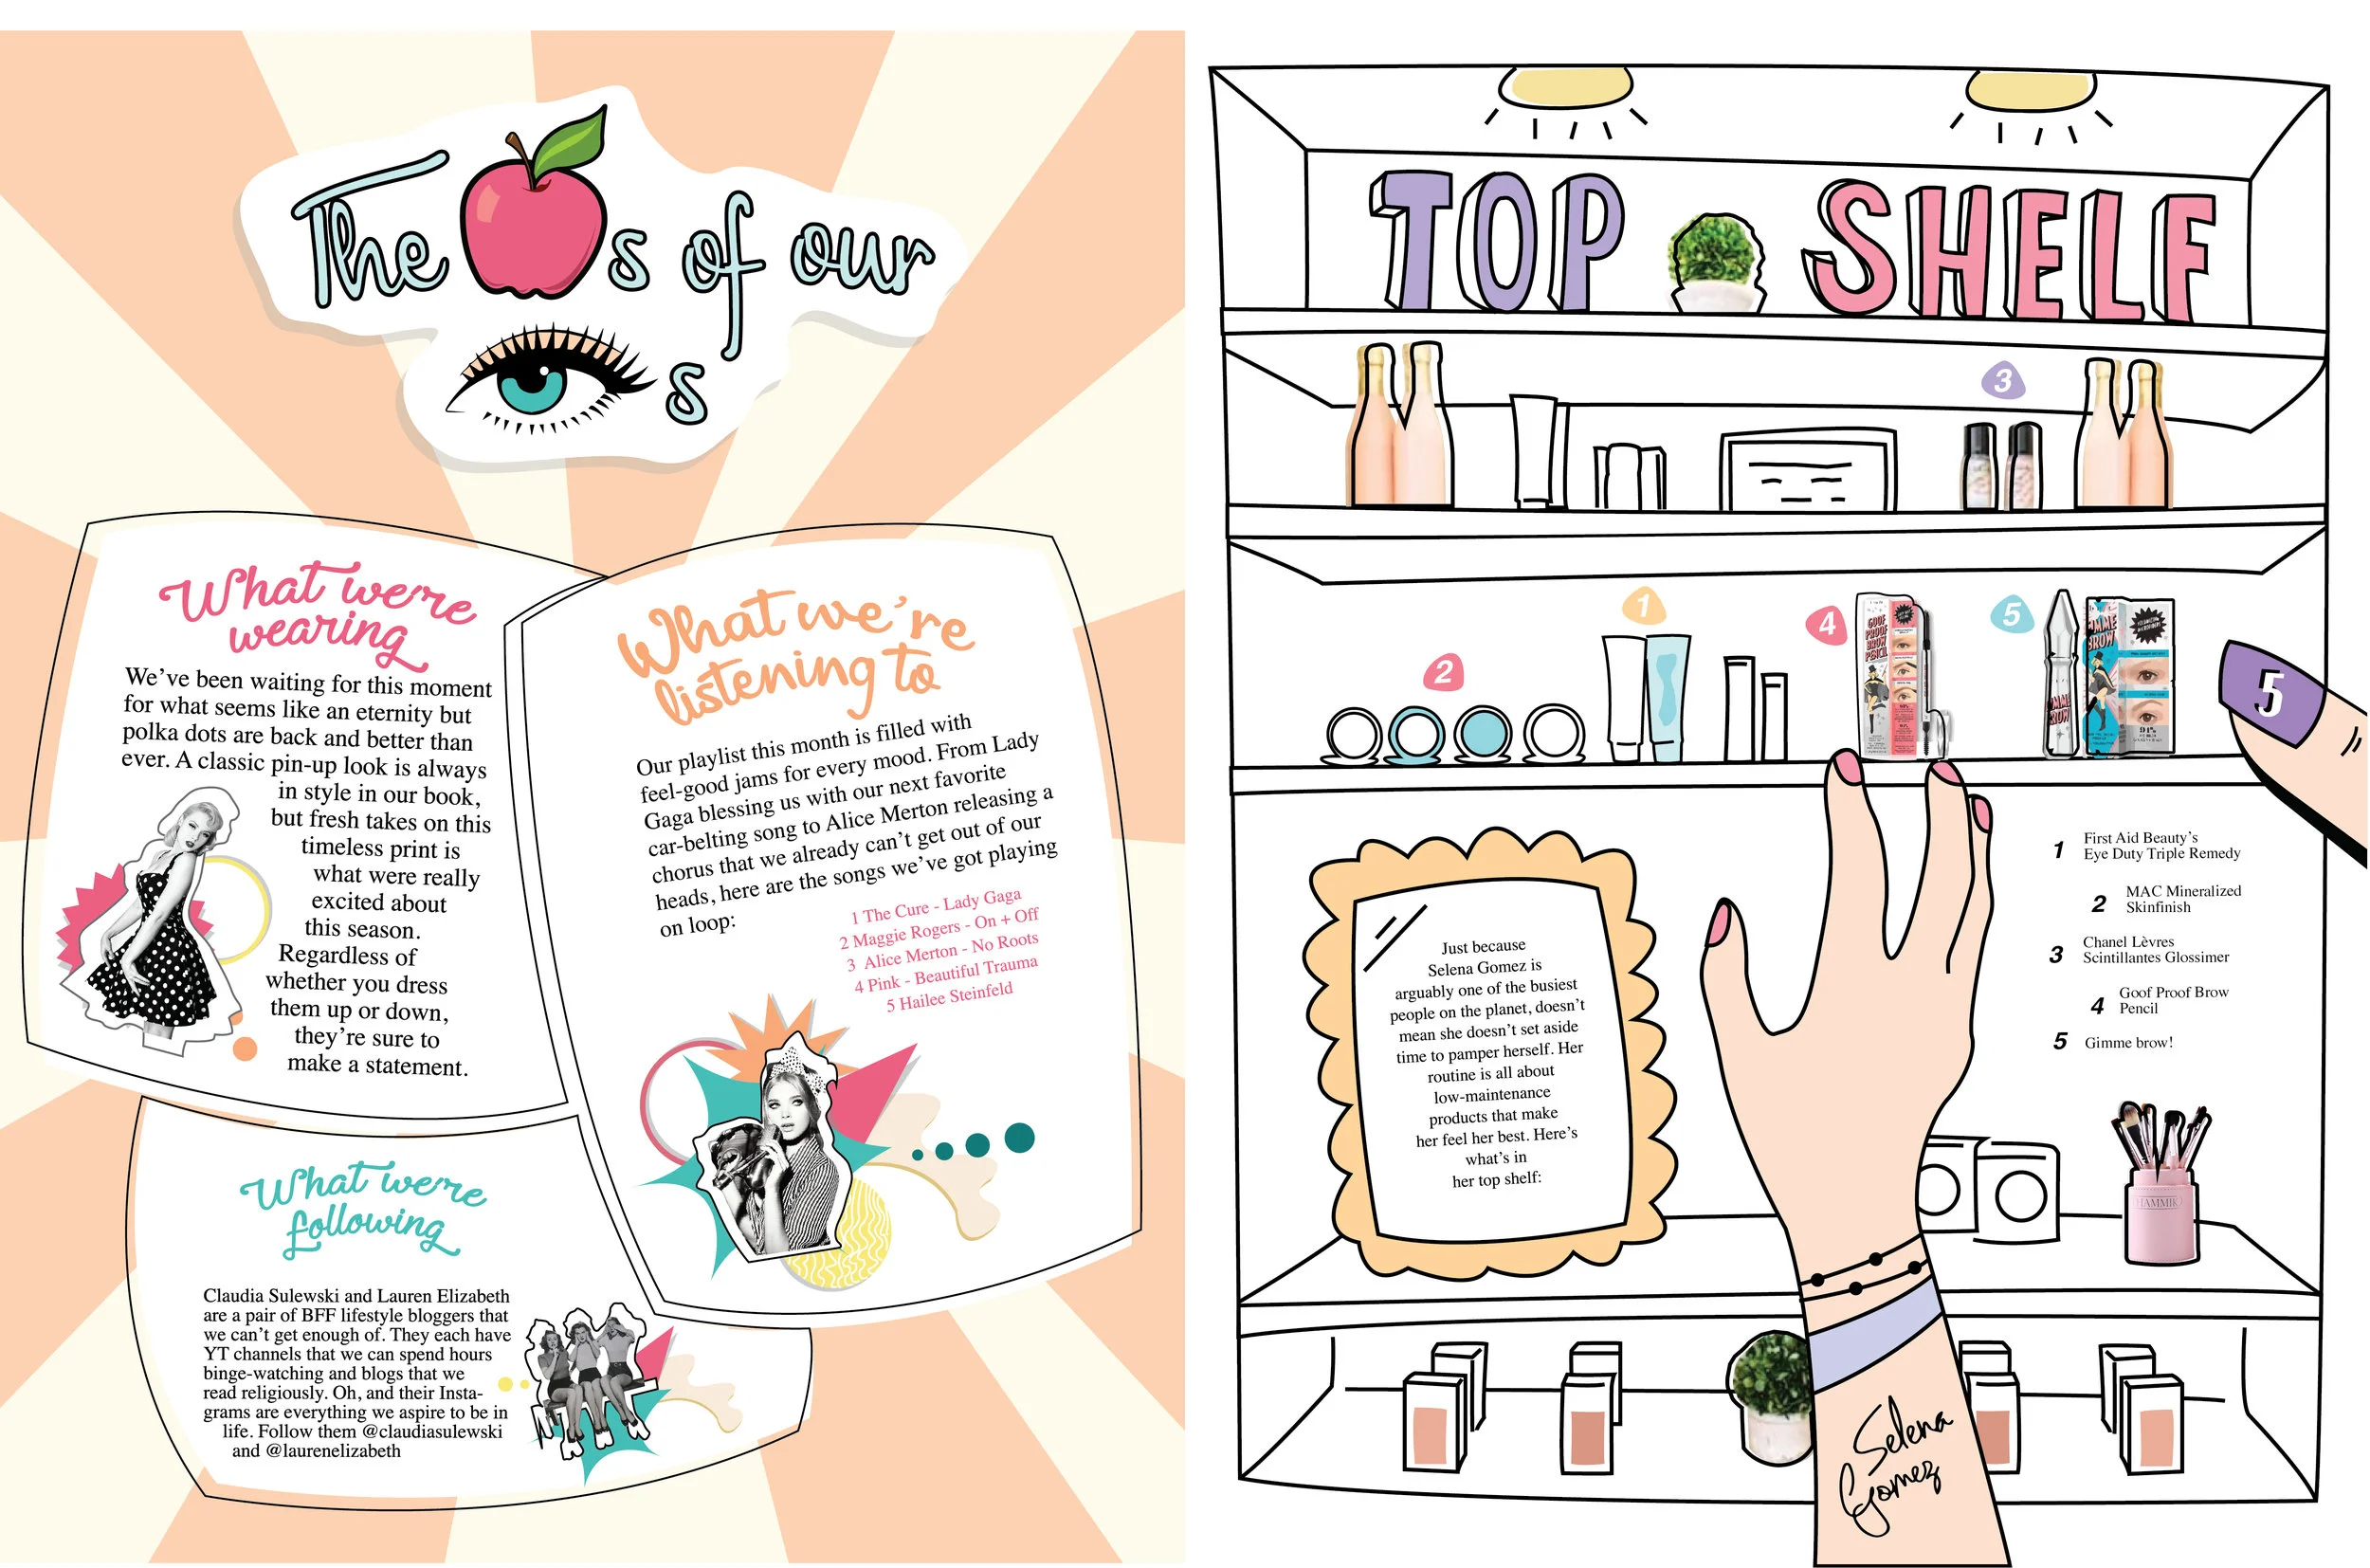 The s of our
s
What we're
wearing
We've been waiting for this moment
for what seems like an eternity but
polka dots are back and better than
ever. A classic pin-up look is always
in style in our book,
but fresh takes on this
timeless print is
what were really
excited about
this season.
Regardless of
whether you dress
them up or down,
they're sure to
make a statement.
What we're
listening to
Our playlist this month is filled with
feel-good jams for every mood. From Lady
Gaga blessing us with our next favorite
car-belting song to Alice Merton releasing a
chorus that we already can't get out of our
heads, here are the songs we've got playing
on loop:
1 The Cure - Lady Gaga
2 Maggie Rogers - On + Off
3 Alice Merton - No Roots
4 Pink - Beautiful Trauma
5 Hailee Steinfeld
What we're
following
Claudia Sulewski and Lauren Elizabeth
are a pair of BFF lifestyle bloggers that
we can't get enough of. They each have
YT channels that we can spend hours
binge-watching and blogs that we
read religiously. Oh, and their Insta-
grams are everything we aspire to be in
life. Follow them @claudiasulewski
and @laurenelizabeth
TOP SHELF
3
1
4
5
2
GOOF
PROOF
BROW
PENCIL
GIMME
BROW
5
Just because
Selena Gomez is
arguably one of the busiest
people on the planet, doesn't
mean she doesn't set aside
time to pamper herself. Her
routine is all about
low-maintenance
products that make
her feel her best. Here's
what's in
her top shelf:
1 First Aid Beauty's
Eye Duty Triple Remedy
2 MAC Mineralized
Skinfinish
3 Chanel Lèvres
Scintillantes Glossimer
4 Goof Proof Brow
Pencil
5 Gimme brow!
Selena
Gomez